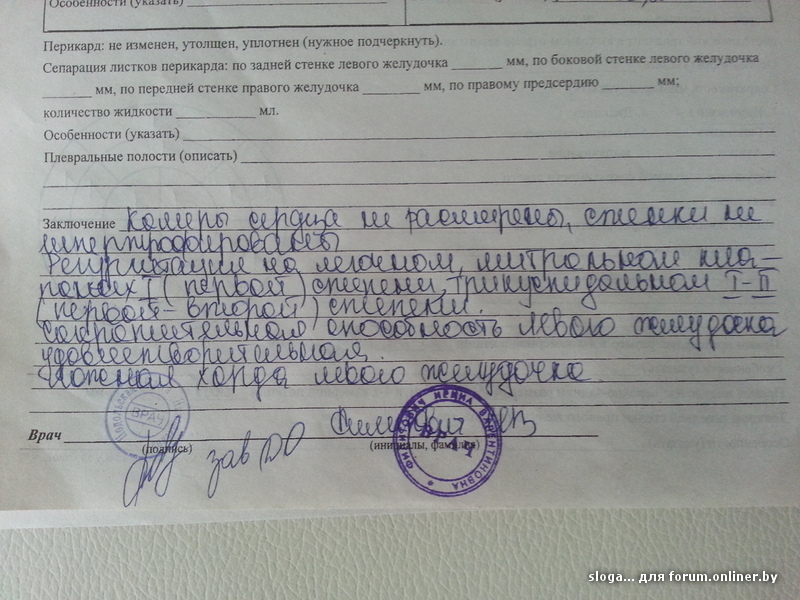 Особенности (указать)
Перикард: не изменен, утолщен, уплотнен (нужное подчеркнуть).
Сепарация листков перикарда: по задней стенке левого желудочка ______ мм, по боковой стенке левого желудочка
______ мм, по передней стенке правого желудочка ______ мм, по правому предсердию ______ мм;
количество жидкости ______ мл.
Особенности (указать)
Плевральные полости (описать)
Заключение Камеры сердца не расширены, стенки не
гипертрофированы
Регургитация на легочном, митральном кла-
панах I (первой) степени, трикуспидальном I-II
(первой-второй) степени.
Сократительная способность левого желудочка
удовлетворительная.
Ложная хорда левого желудочка.
Врач
(подпись)
зав ДО
(инициалы, фамилия)
ВРАЧ
ФИЛИПОВИЧ ИРИНА ВАЛЕНТИНОВНА
ВРАЧ
sloga... для forum.onliner.by